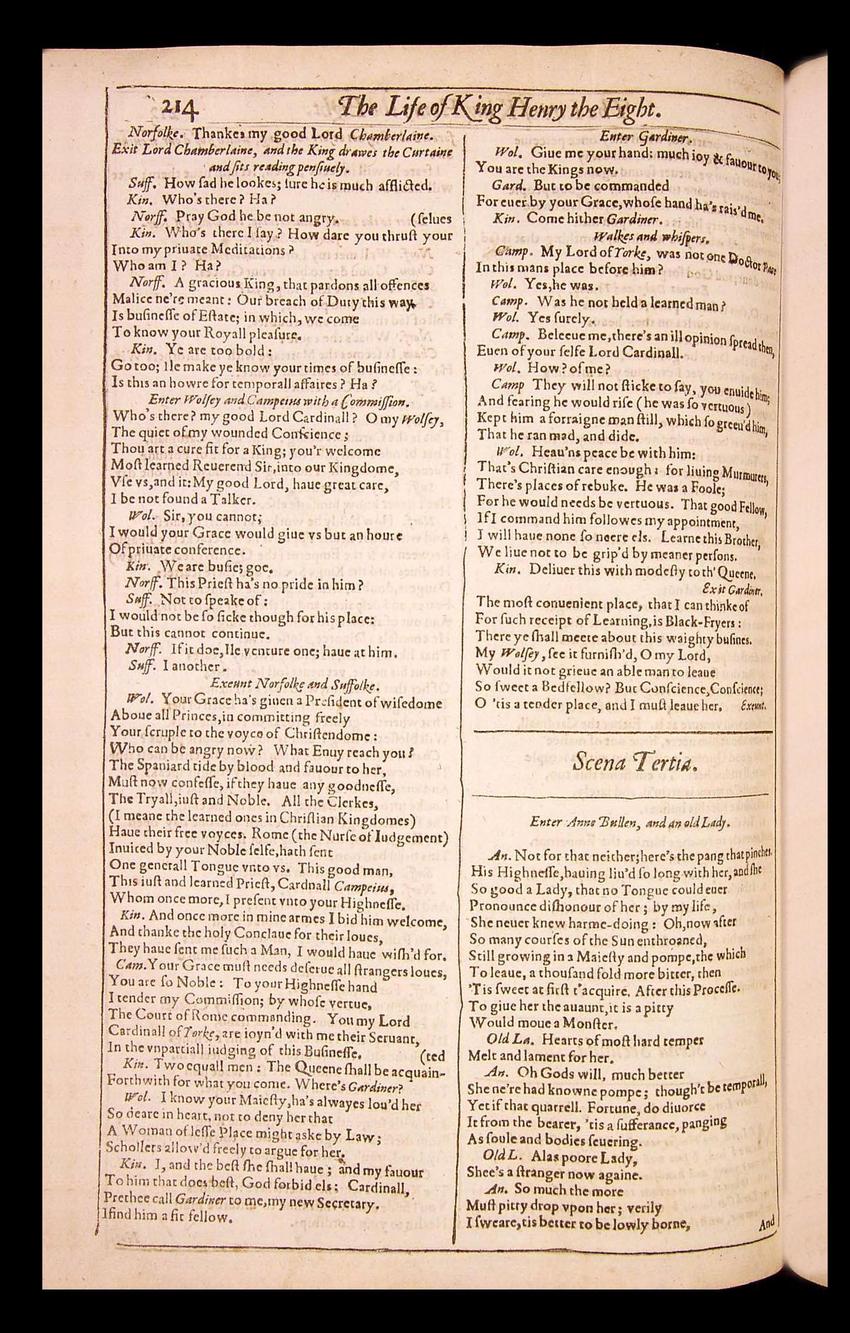 214
The Life of King Henry the Eight.
Norfolke. Thankes my good Lord Chamberlaine.
Exit Lord Chamberlaine, and the King drawes the Curtaine
and sits reading pensiuely.
Suff. How sad he lookes; sure he is much afflicted.
Kin. Who's there? Ha?
Norff. Pray God he be not angry. (selues
Kin. Who's there I say? How dare you thrust your
Into my priuate Meditations?
Who am I? Ha?
Norff. A gracious King, that pardons all offences
Malice ne're meant: Our breach of Duty this way,
Is businesse of Estate; in which, we come
To know your Royall pleasure.
Kin. Ye are too bold:
Go too; Ile make ye know your times of businesse:
Is this an howre for temporall affaires? Ha?
Enter Wolsey and Campeius with a Commission.
Who's there? my good Lord Cardinall? O my Wolsey,
The quiet of my wounded Conscience;
Thou art a cure fit for a King; you'r welcome
Most learned Reuerend Sir, into our Kingdome,
Vse vs, and it: My good Lord, haue great care,
I be not found a Talker.
Wol. Sir, you cannot;
I would your Grace would giue vs but an houre
Of priuate conference.
Kin. We are busie; goe.
Norff. This Priest ha's no pride in him?
Suff. Not to speake of:
I would not be so sicke though for his place:
But this cannot continue.
Norff. If it doe, Ile venture one; haue at him.
Suff. I another.
Exeunt Norfolke and Suffolke.
Wol. Your Grace ha's giuen a President of wisedome
Aboue all Princes, in committing freely
Your scruple to the voyce of Christendome:
Who can be angry now? What Enuy reach you?
The Spaniard tide by blood and fauour to her,
Must now confesse, if they haue any goodnesse,
The Tryall, iust and Noble. All the Clerkes,
(I meane the learned ones in Christian Kingdomes)
Haue their free voyces. Rome (the Nurse of Iudgement)
Inuited by your Noble selfe, hath sent
One generall Tongue vnto vs. This good man,
This iust and learned Priest, Cardnall Campeius,
Whom once more, I present vnto your Highnesse.
Kin. And once more in mine armes I bid him welcome,
And thanke the holy Conclaue for their loues,
They haue sent me such a Man, I would haue wish'd for.
Cam. Your Grace must needs deserue all strangers loues,
You are so Noble: To your Highnesse hand
I tender my Commission; by whose vertue,
The Court of Rome commanding. You my Lord
Cardinall of Yorke, are ioyn'd with me their Seruant,
In the vnpartiall iudging of this Businesse. (ted
Kin. Two equall men: The Queene shall be acquain-
Forthwith for what you come. Where's Gardiner?
Wol. I know your Maiesty, ha's alwayes lou'd her
So deare in heart, not to deny her that
A Woman of lesse Place might aske by Law;
Schollers allow'd freely to argue for her.
Kin. I, and the best she shall haue; and my fauour
To him that does best, God forbid els: Cardinall,
Prethee call Gardiner to me, my new Secretary.
I find him a fit fellow.
Enter Gardiner.
Wol. Giue me your hand: much ioy & fauour to you;
You are the Kings now.
Gard. But to be commanded
For euer by your Grace, whose hand ha's rais'd me.
Kin. Come hither Gardiner.
Walkes and whispers.
Camp. My Lord of Yorke, was not one Doctor Pace
In this mans place before him?
Wol. Yes, he was.
Camp. Was he not held a learned man?
Wol. Yes surely.
Camp. Beleeue me, there's an ill opinion spread then,
Euen of your selfe Lord Cardinall.
Wol. How? of me?
Camp They will not sticke to say, you enuide him;
And fearing he would rise (he was so vertuous)
Kept him a forraigne man still, which so greeu'd him,
That he ran mad, and dide.
Wol. Heau'ns peace be with him:
That's Christian care enough: for liuing Murmurers,
There's places of rebuke. He was a Foole;
For he would needs be vertuous. That good Fellow,
If I command him followes my appointment,
I will haue none so neere els. Learne this Brother,
We liue not to be grip'd by meaner persons.
Kin. Deliuer this with modesty to th' Queene.
Exit Gardiner.
The most conuenient place, that I can thinke of
For such receipt of Learning, is Black-Fryers:
There ye shall meete about this waighty busines.
My Wolsey, see it furnish'd, O my Lord,
Would it not grieue an able man to leaue
So sweet a Bedfellow? But Conscience, Conscience;
O 'tis a tender place, and I must leaue her. Exeunt.
Scena Tertia.
Enter Anne Bullen, and an old Lady.
An. Not for that neither; here's the pang that pinches.
His Highnesse, hauing liu'd so long with her, and she
So good a Lady, that no Tongue could euer
Pronounce dishonour of her; by my life,
She neuer knew harme-doing: Oh, now after
So many courses of the Sun enthroaned,
Still growing in a Maiesty and pompe, the which
To leaue, a thousand fold more bitter, then
'Tis sweet at first t'acquire. After this Processe.
To giue her the auaunt, it is a pitty
Would moue a Monster.
Old La. Hearts of most hard temper
Melt and lament for her.
An. Oh Gods will, much better
She ne're had knowne pompe; though't be temporall,
Yet if that quarrell. Fortune, do diuorce
It from the bearer, 'tis a sufferance, panging
As soule and bodies seuering.
Old L. Alas poore Lady,
Shee's a stranger now againe.
An. So much the more
Must pitty drop vpon her; verily
I sweare, tis better to be lowly borne,
And